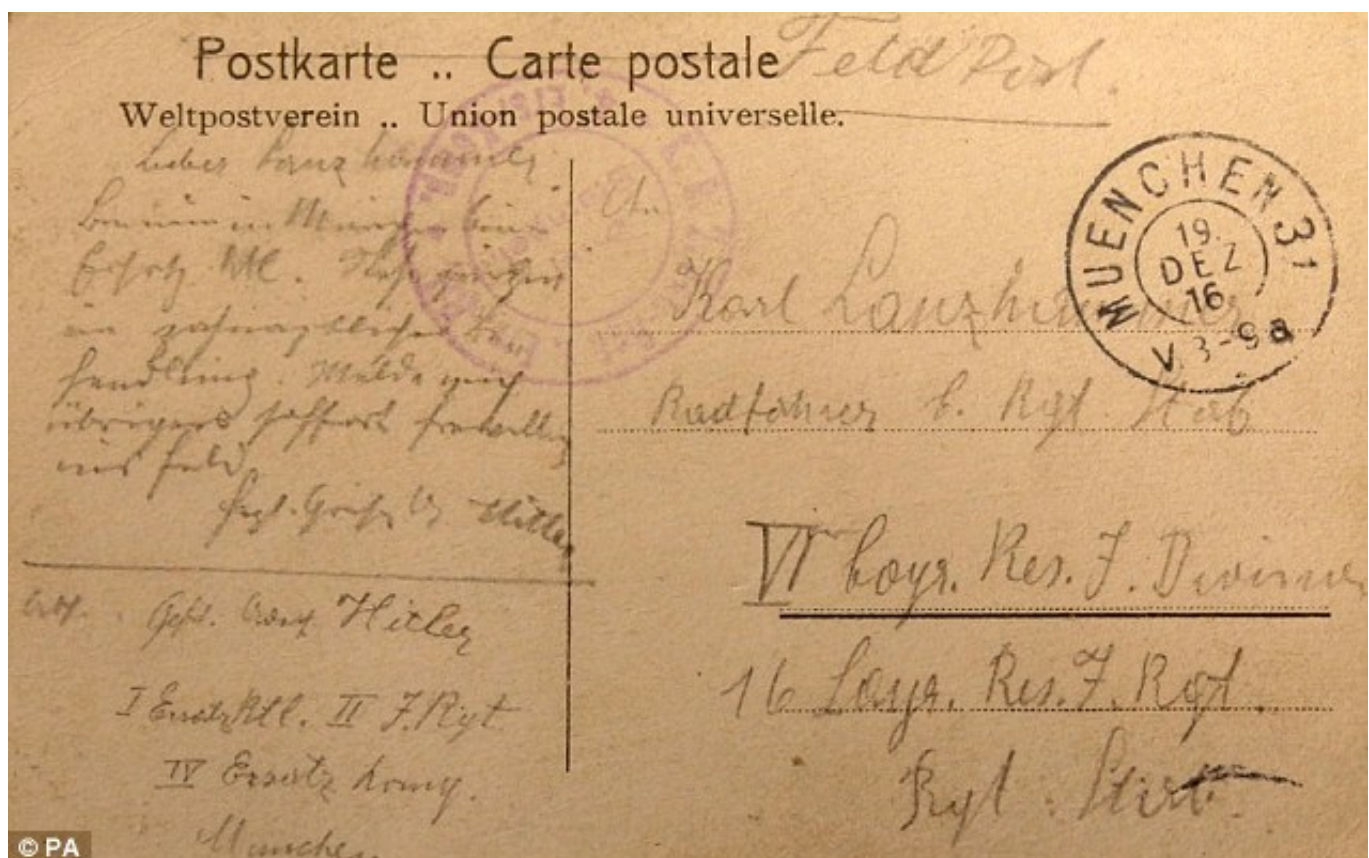 Postkarte .. Carte postale
Feldpost.
Weltpostverein .. Union postale universelle.
Lieber Lanzhammer
Bin nun in München beim
Ersatz Btl. Stehe zurzeit
in zahnärztlicher Be
handlung. Melde mich
übrigens soffort freiwillig
ins Feld
Hitler
Gefr. Hitler
I Ersatz Btl. II J. Rgt
IV Ersatz Komp.
München
An
Karl Lanzhammer
Radfahrer b. Rgt. Stab
VI bayr. Res. J. Division
16 bayr. Res. J. Rgt.
Rgt. Stab.
MUENCHEN 31
19.
DEZ
16
V 8-9 a
© PA